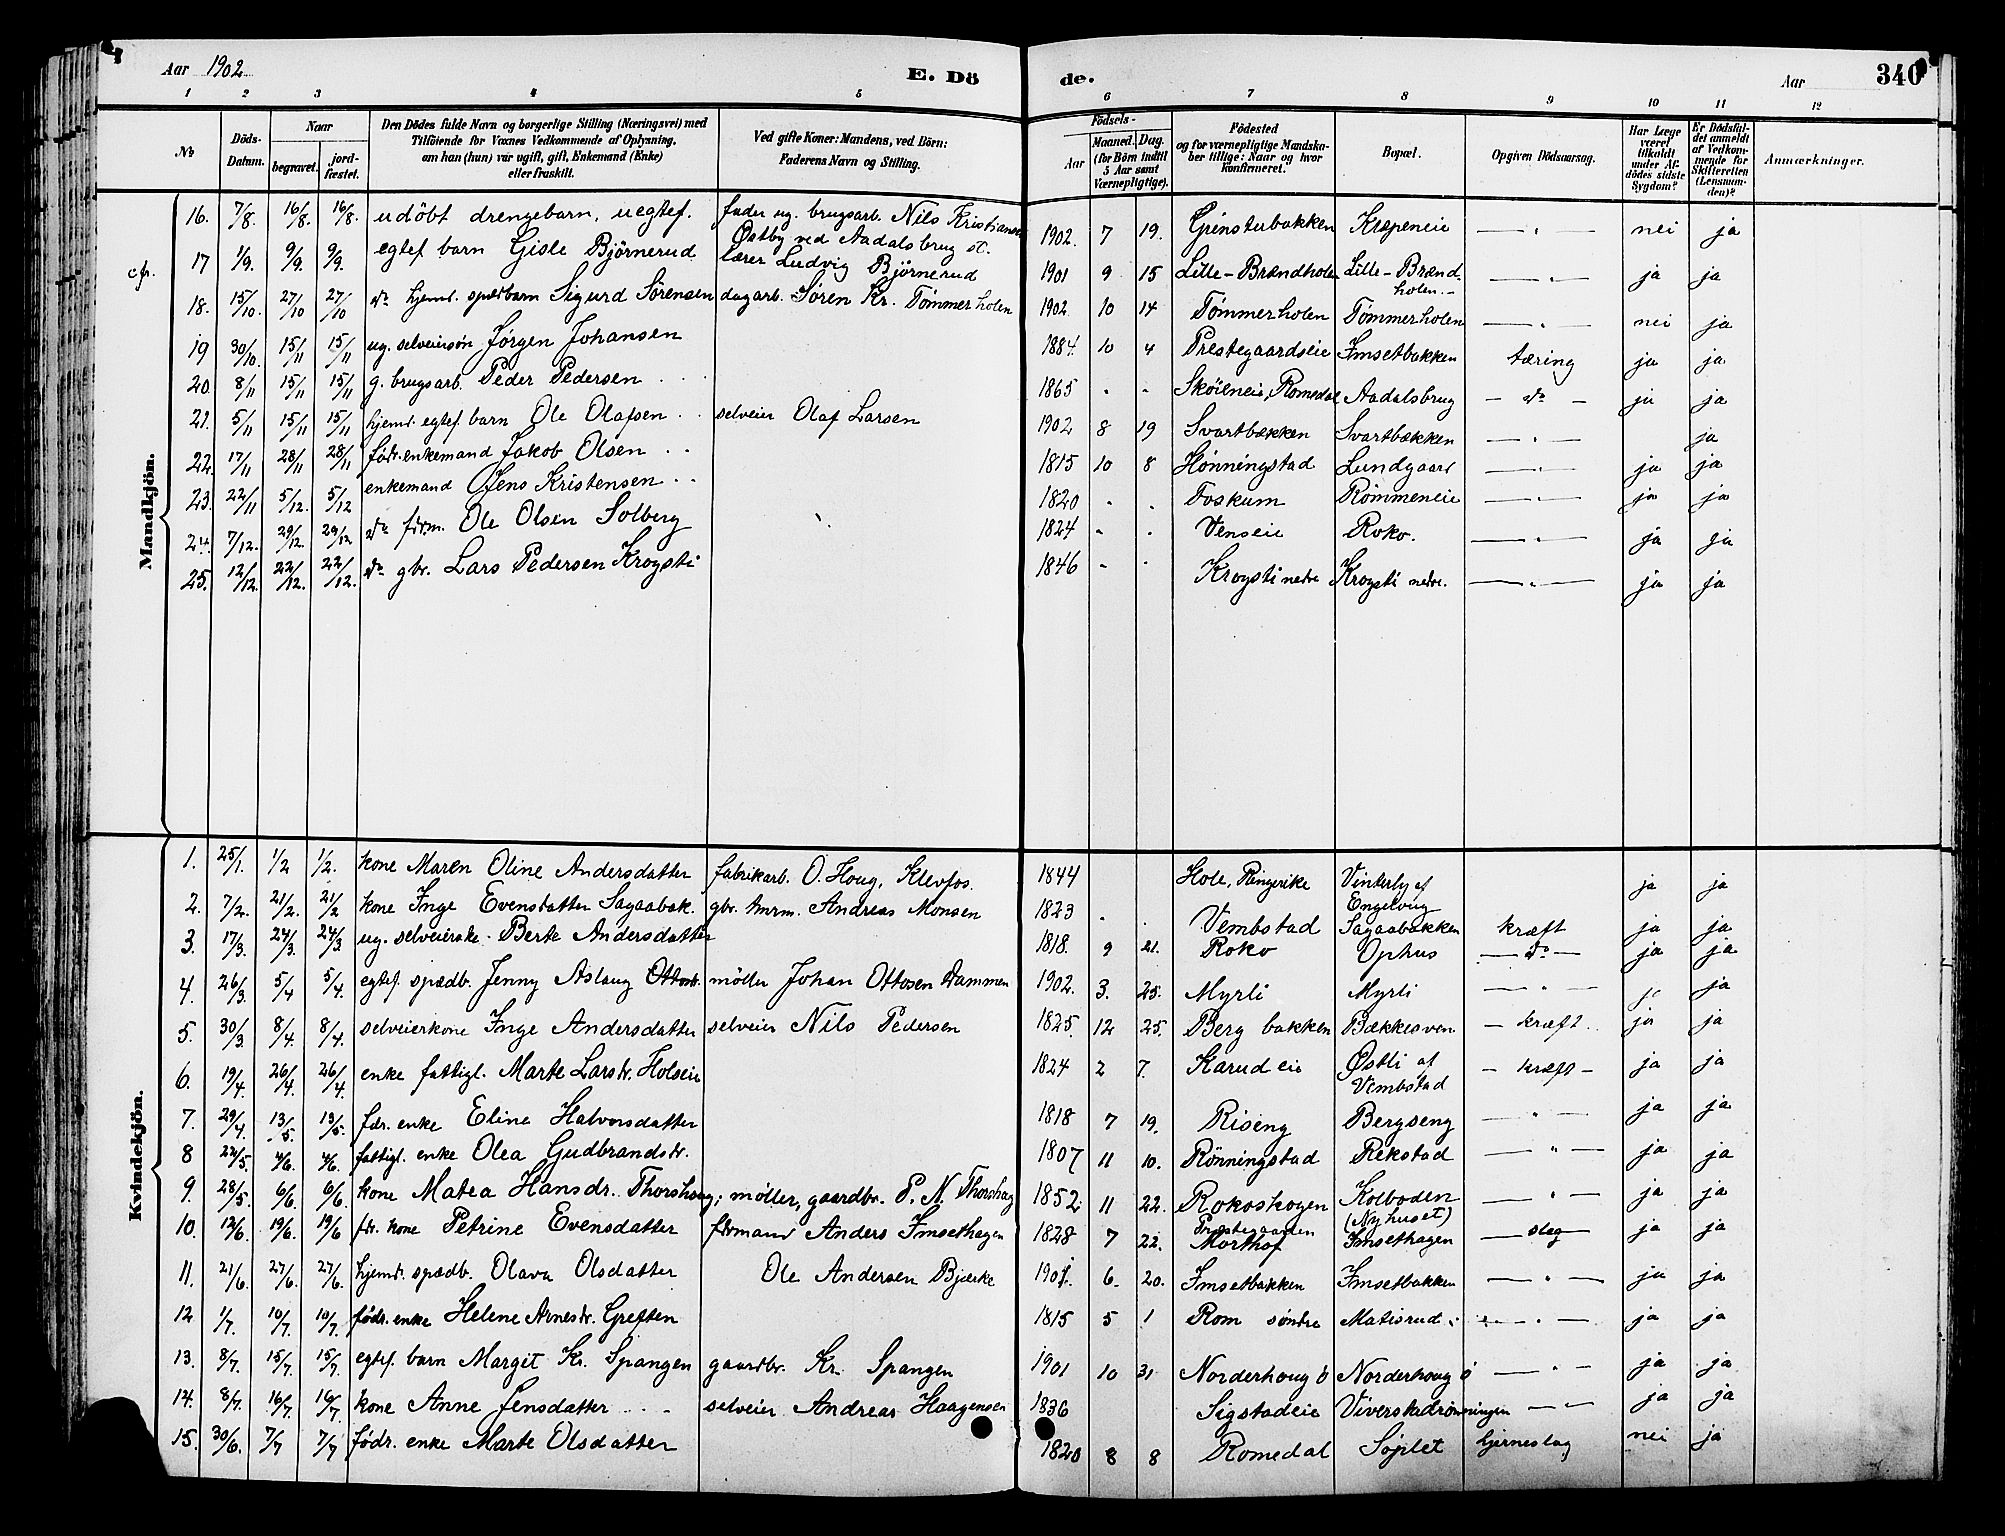 Aar 1902
E. Dö de.
Aar
340
1 2 3 4 5 6 7 8 9 10 11 12
No
Döds-Datum.
Naar
begravet.
jord-fæstet.
Den Dödes fulde Navn og borgerlige Stilling (Næringsvei) med
Tilföiende for Voxnes Vedkommende af Oplysning,
om han (hun) var ugift, gift, Enkemand (Enke)
eller fraskilt.
Ved gifte Koner: Mandens, ved Börn:
Faderens Navn og Stilling.
Födsels-
Aar
Maaned.
Dag.
(for Börn indtil
5 Aar samt
Værnepligtige).
Födested
og for værnepligtige Mandska-
ber tillige: Naar og hvor
konfirmeret.
Bopæl.
Opgiven Dödsaarsag.
Har Læge
været
tilkaldt
under Af-
dödes sidste
Sygdom?
Er Dödsfal-
det anmeldt
af Vedkom-
mende for
Skifteretten
(Lensman-
den)?
Anmærkninger.
Mandkjön.
16. 7/8. 16/8. 16/8. udöbt drengebarn, uegtef. fader ug. brugsarb. Nils Kristiansen 1902. 7 19. Grinsterbakken Kræpeneie — " — nei ja
Østby ved Aadalsbrug st.
cfr. 17 1/9. 9/9. 9/9. egtef barn Gisle Björnerud lærer Ludvig Björnerud 1901 9 15 Lille-Brændholen Lille-Brænd- — " — ja ja
holen.-
18. 15/10. 27/10 27/10 do hjemd. spædbarn Sigurd Sörensen dagarb. Sören Kr. Tömmerholen 1902 10 14 Tömmerholen Tömmerholen — " — nei ja
19 30/10. 15/11 15/11 ug. selveiersön Jørgen Johansen 1884. 10 4 Prestegaardseie Imsetbakken tæring ja ja
20. 8/11 15/11 15/11 g. brugsarb. Peder Pedersen 1865 - - Sköieneie, Romedal Aadalsbrug — do — ja ja
21. 5/11 15/11 15/11 hjemd. egtef. barn Ole Olafsen selveier Olaf Larsen 1902 8 19 Svartbækken Svartbækken — " — ja
22. 17/11 28/11 28/11 födr. enkemand Jakob Olsen 1815 10 8 Hönningstad Lundgaard — " — ja ja
23. 22/11 5/12. 5/12 enkemand Jens Kristensen 1820 - . Foskum Rommeneie — " — ja ja
24. 7/12. 29/12. 29/12 do förm. Ole Olsen Solberg 1824 - . Venseie Roko. — " — ja ja
25. 12/12. 22/12. 22/12. do gbr. Lars Pedersen Krogsti 1846 - . Krogsti nedre Krogsti nedre. — " — ja ja
Kvindekjön.
1. 25/1. 1/2 1/2. kone Maren Oline Andersdatter fabrikarb. O. Houg, Klevfos. 1844 Hole, Ringerike Vinterby af ja ja
Engelvug
2. 7/2. 21/2. 21/2 kone Inge Evensdatter Sagaabak. gbr. tmrm. Andreas Monsen 1823 . . Vembstad Sagaabakken kræft ja ja
3. 17/3. 24/3 24/3 ug. selveierske. Berte Andersdatter 1818. 9 21. Roko Ophus — do — ja ja
4. 26/3. 5/4 5/4. egtef. spædb. Jenny Aslaug Ottosdr. möller Johan Ottosen Dammen 1902. 3. 25. Myrli Myrli — " — ja
5. 30/3. 8/4. 8/4. selveierkone Inge Andersdatter selveier Nils Pedersen 1825. 12 25. Berg bakken Bækkesven — kræft. ja ja
6. 19/4. 26/4 26/4 enke fattigl. Marte Larsdr. Holseie 1824 2 7. Karudeie Østli af — kræft — ja ja
Vembstad
7. 29/4. 13/5. 13/5. fdr. enke Eline Halvorsdatter 1818 7 19. Riseng Bergseng — " — ja ja
8 22/5. 4/6. 4/6. fattigl. enke Olea Gudbrandsdr. 1807 11 10. Rönningstad Rekstad — " — ja ja
9. 28/5. 6/6. 6/6. kone Matea Hansdr. Thorshoug; möller, gaardbr. P. N. Thorshug 1852 11 22. Rokoskogen Kolboden — " — ja ja
(Nyhuset)
10. 12/6. 19/6. 19/6 fdr. kone Petrine Evensdatter fdrmand Anders Imsethagen 1828 7 22. Præstegaarden
Morthof Imsethagen — slag — ja ja
11. 21/6. 27/6. 27/6. hjemd. spædb. Olava Olsdatter Ole Andersen Bjærke 1901. 6. 20. Imsetbakken Imsetbakken — " — ja ja
12 1/7. 10/7. 10/7. födr. enke Helene Arnesdr. Greften 1815 5 1 Rom söndre Matisrud — " — ja ja
13. 8/7. 15/7. 15/7. egtef. barn Margit Kr. Spangen gaardbr. Kr. Spangen 1901 10 31 Norderhoug ö Norderhoug ö — " — ja ja
14. 8/7. 16/7. 16/7. kone Anne Jensdatter selveier Andreas Haagensen 1836 Sigstadeie Viverstadrönningen — " — ja ja
15. 30/6. 7/7 7/7 födr. enke Marte Olsdatter 1820 8 8 Romedal Söplet hjerneslag nei ja